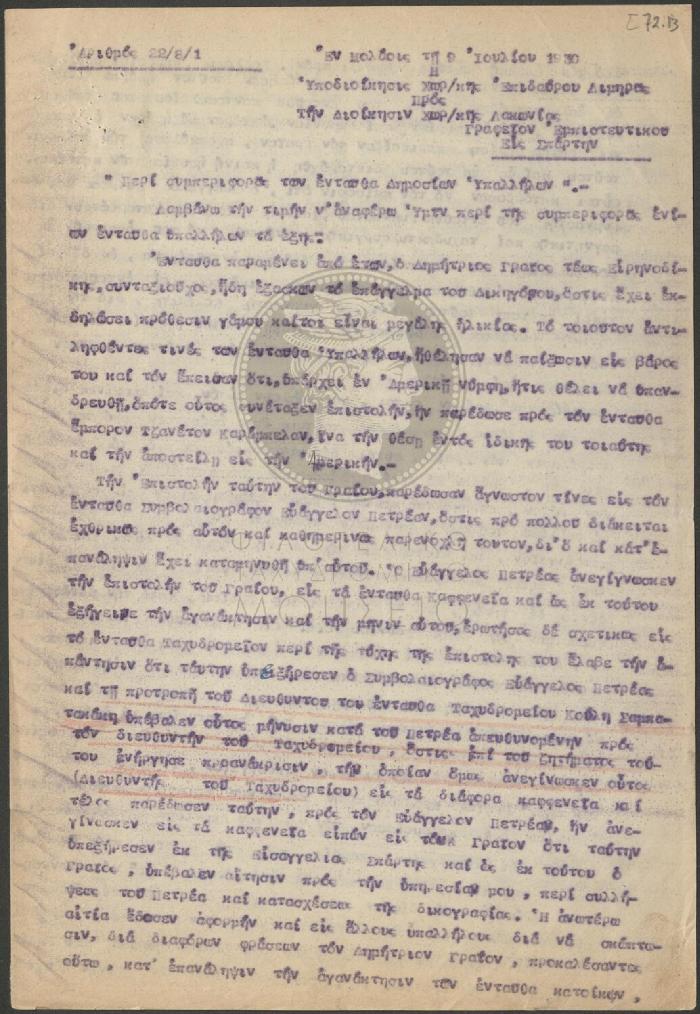 [72.B
Ἀριθμός 22/8/1
Ἐν Μολάοις τῇ 9 Ἰουλίου 1930
Η
Ὑποδιοίκησις Χωρ/κῆς Ἐπιδαύρου Λιμηρᾶς
Πρός
Τήν Διοίκησιν Χωρ/κῆς Λακωνίας
Γραφεῖον Ἐμπιστευτικοῦ
Εἰς Σπάρτην
" Περί συμπεριφορᾶς τῶν ἐνταῦθα Δημοσίων Ὑπαλλήλων ".-
Λαμβάνω τήν τιμήν ν'ἀναφέρω Ὑμῖν περί τῆς συμπεριφορᾶς ἐνί-
ων ἐνταῦθα ὑπαλλήλων τά ἑξῆς:
Ἐνταῦθα παραμένει ἀπό ἐτῶν,ὁ Δημήτριος Γραῖος τέως Εἰρηνοδί-
κης,συνταξιοῦχος,ἤδη ἐξασκῶν τό ἐπάγγελμα τοῦ Δικηγόρου,ὅστις ἔχει ἐκ-
δηλώσει πρόθεσιν γάμου καίτοι εἶναι μεγάλης ἡλικίας. Τό τοιοῦτον ἀντι-
ληφθέντες τινές τῶν ἐνταῦθα Ὑπαλλήλων,ἠθέλησαν νά παίξωσιν εἰς βάρος
του καί τόν ἔπεισαν ὅτι,ὑπάρχει ἐν Ἀμερικῇ νύμφη,ἥτις θέλει νά ὑπαν-
δρευθῇ,ὁπότε οὗτος συνέταξεν ἐπιστολήν,ἥν παρέδωσε πρός τόν ἐνταῦθα
ἔμπορον Τζανέτον Καράμπελαν,ἵνα τήν θέσῃ ἐντός ἰδικῆς του τοιαύτης
καί τήν ἀποστείλῃ εἰς τήν Ἀμερικήν.-
Τήν Ἐπιστολήν ταύτην τοῦ Γραίου,παρέδωσαν ἄγνωστον τίνες εἰς τόν
ἐνταῦθα Συμβολαιογράφον Εὐάγγελον Πετρέαν,ὅστις πρό πολλοῦ διάκειται
ἐχθρικῶς πρός αὐτόν καί καθημερινῶς παρενοχλῇ τοῦτον,δι'ὅ καί κατ'ἐ-
πανάληψιν ἔχει καταμηνυθῆ ὑπ'αὐτοῦ. Ὁ Εὐάγγελος Πετρέας ἀνεγίγνωσκεν
τήν ἐπιστολήν τοῦ Γραίου, εἰς τά ἐνταῦθα Καφφενεῖα καί ὡς ἐκ τούτου
ἐξήγειρε τήν ἀγανάκτησιν καί τήν μῆνιν αὐτοῦ,ἐρωτήσας δέ σχετικῶς εἰς
τό ἐνταῦθα Ταχυδρομεῖον περί τῆς τύχης τῆς ἐπιστολῆς του ἔλαβε τήν ἀ-
πάντησιν ὅτι ταύτην ὑπεξῄρεσεν ὁ Συμβολαιογράφος Εὐάγγελος Πετρέας
καί τῇ προτροπῇ τοῦ Διευθυντοῦ τοῦ ἐνταῦθα Ταχυδρομείου Κούλη Σαμπα-
τακάκη ὑπέβαλεν οὗτος μήνυσιν κατά τοῦ Πετρέα ἀπευθυνομένην πρός
τόν διευθυντήν τοῦ Ταχυδρομείου , ὅστις ἐπί τοῦ ζητήματος τού-
του ἐνήργησε προανάκρισιν , τήν ὁποίαν ὅμως ἀνεγίνωσκεν οὗτος
(Διευθυντής τοῦ Ταχυδρομείου) εἰς τά διάφορα καφφενεῖα καί
τέλος παρέδωσεν ταύτην , πρός τόν Εὐάγγελον Πετρέαν, ἥν ἀνε-
γίνωσκεν εἰς τά καφφενεῖα εἰπών εἰς τόν Γραῖον ὅτι ταύτην
ὑπεξῄρεσεν ἐκ τῆς Εἰσαγγελίας Σπάρτης καί ὡς ἐκ τούτου ὁ
Γραῖος , ὑπέβαλεν αἴτησιν πρός τήν ὑπηρεσίαν μου , περί συλλή-
ψεως τοῦ Πετρέα καί κατασχέσεως τῆς δικογραφίας. Ἡ ἀνωτέρω
αἰτία ἔδωσεν ἀφορμήν καί εἰς ἄλλους ὑπαλλήλους διά νά σκώπτω-
σιν, διά διαφόρων φράσεων τόν Δημήτριον Γραῖον , προκαλέσαντες
οὕτω , κατ' ἐπανάληψιν τήν ἀγανάκτησιν τῶν ἐνταῦθα κατοίκων ,